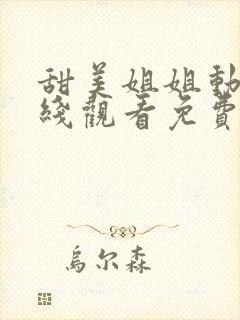 甜美姐姐動
綫觀看免費
烏尔森